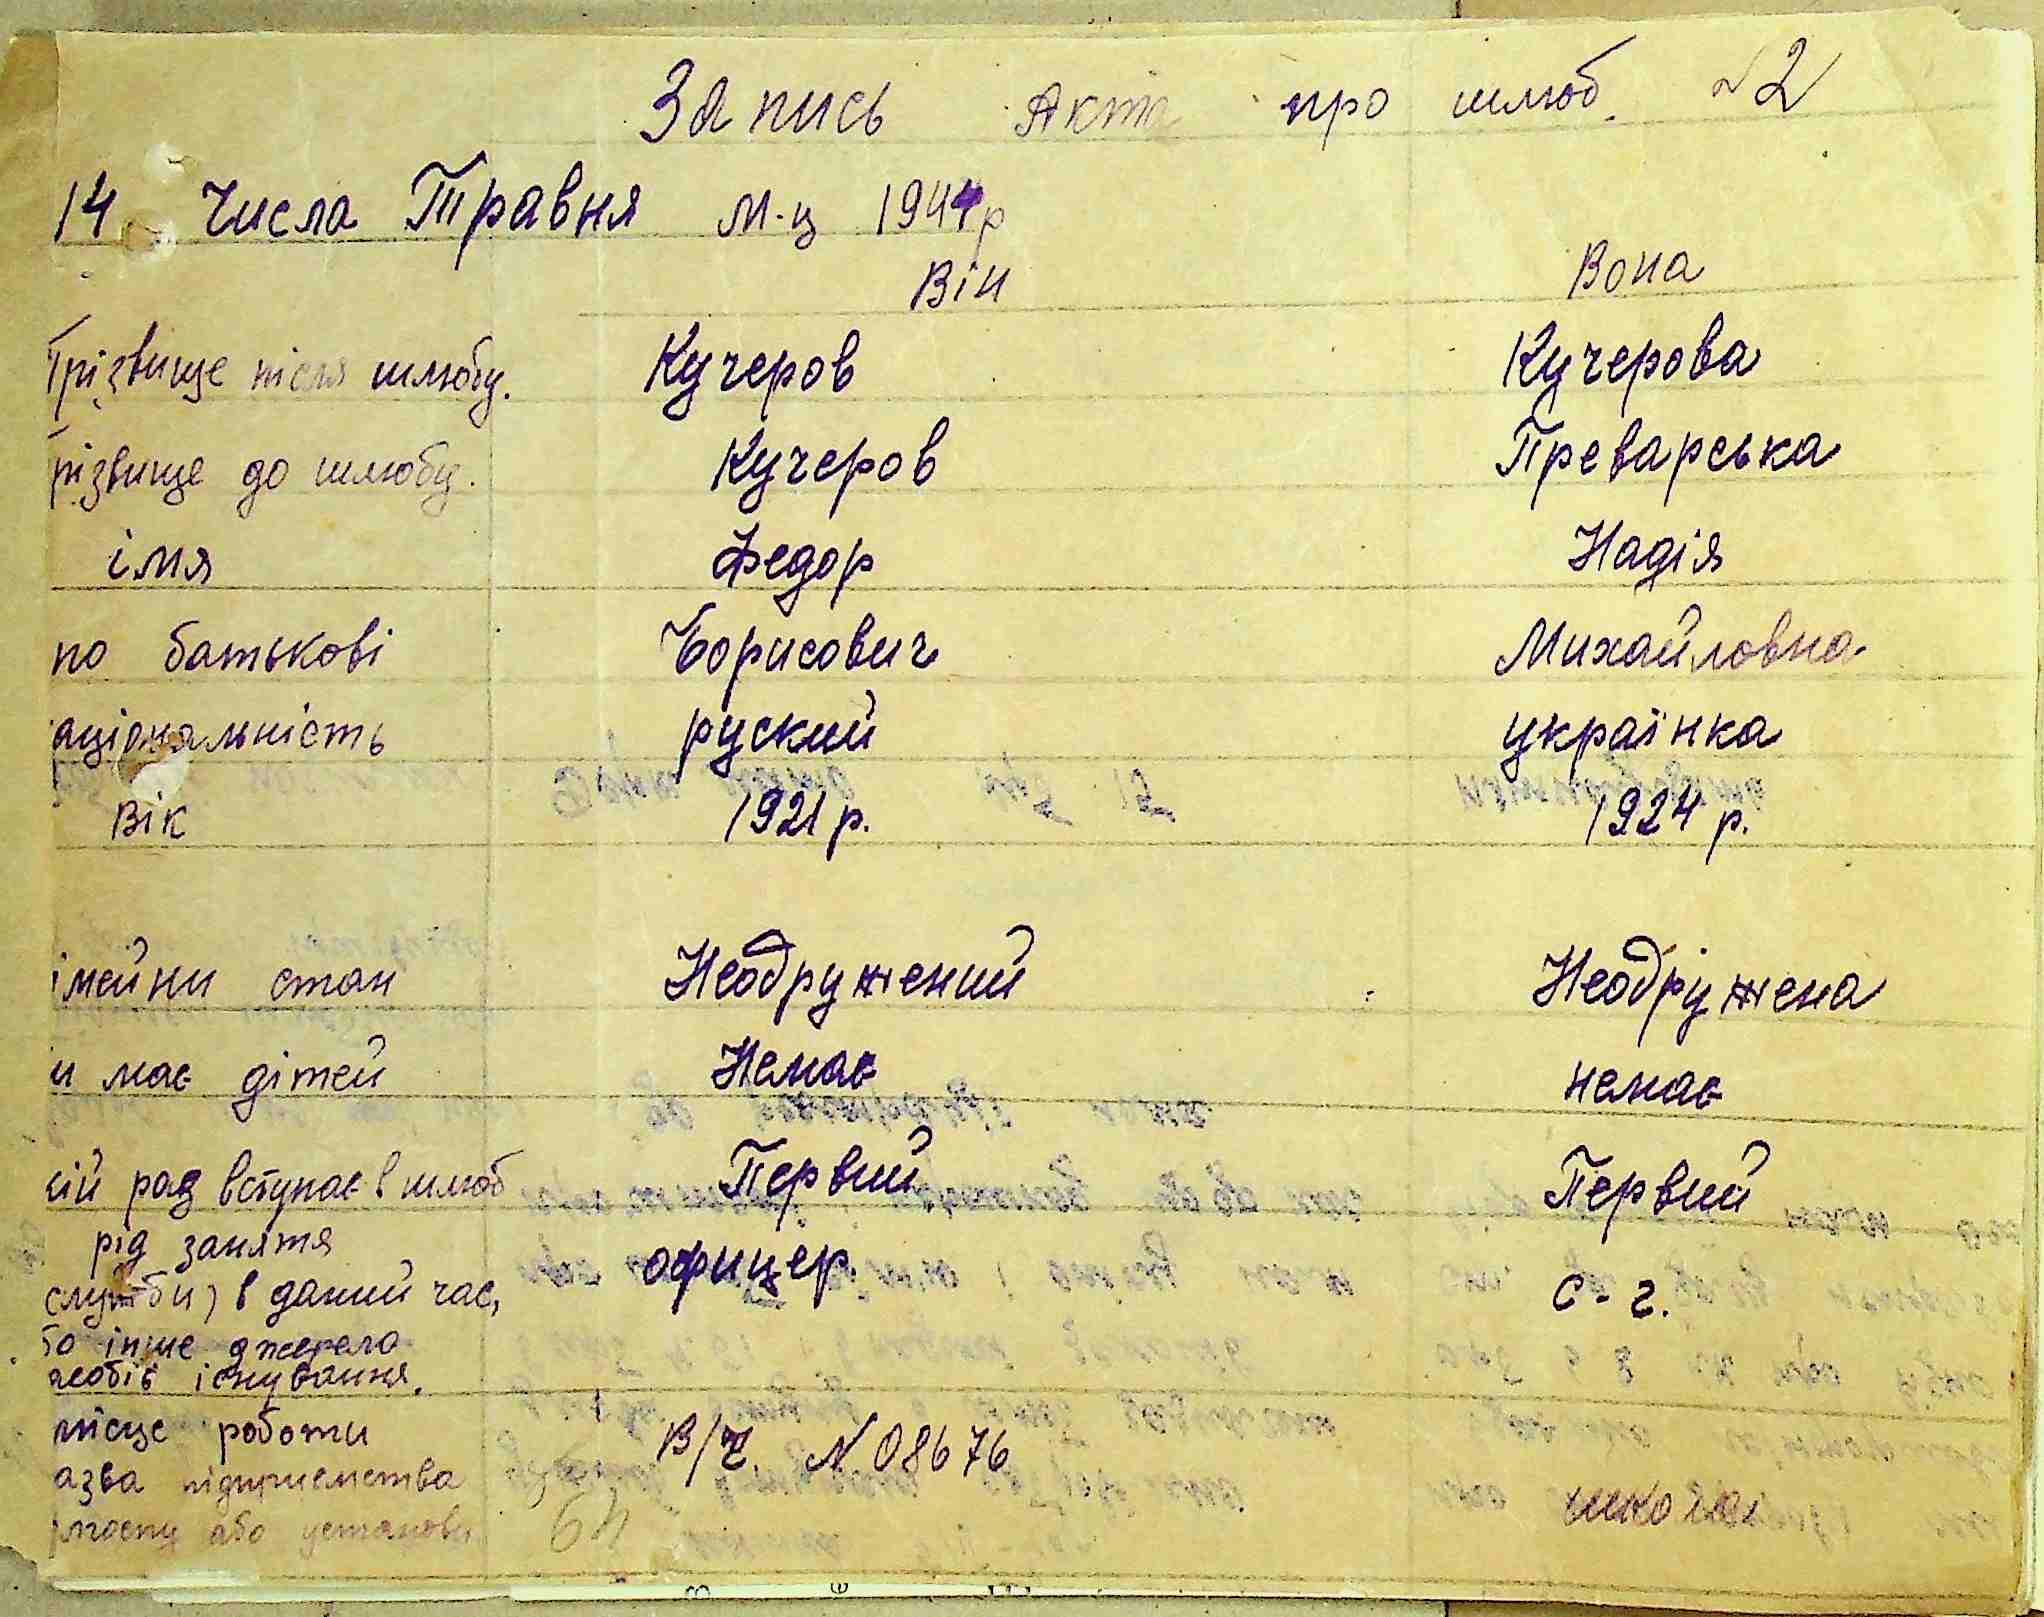 Запись Акта про шлюб. №2
14 Числа Травня м-ц 1944р
Він Вона
Прізвище після шлюбу. Кучеров Кучерова
Прізвище до шлюбу. Кучеров Преварська
імя Федор Надія
по батькові Борисович Михайловна
аціональність руский українка
Вік 1921 р. 1924 р.
імейни стан Неодружений Неодріжена
и має дітей Немає немає
кій раз вступає в шлюб Первий Первий
рід заняття офицер. с-г.
служби) в даний час,
бо інше джерело
асобів існування.
місце роботи В/ч. N 08676
азва підприємства
або установи
64